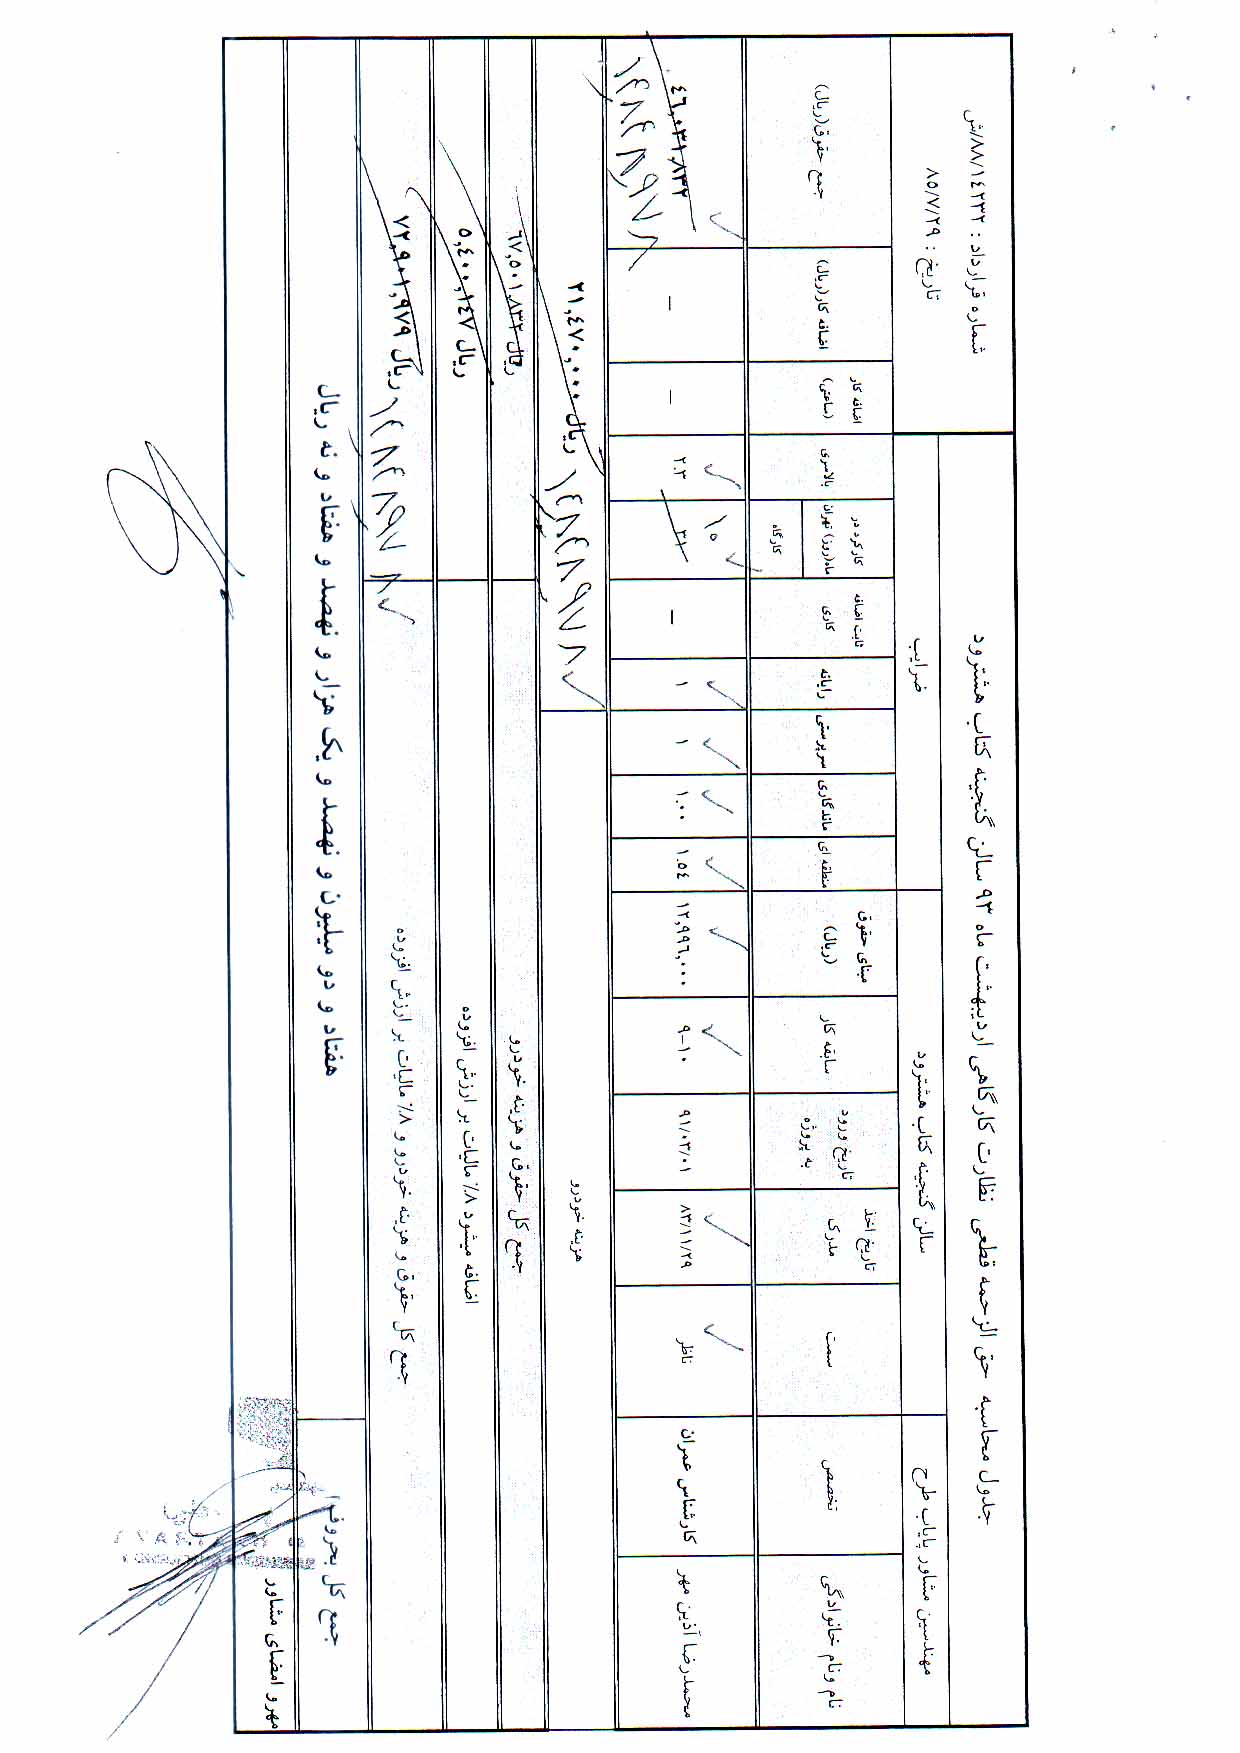 جدول محاسبه حق الزحمه قطعی نظارت کارگاهی اردیبهشت ماه ۹۳ سالن گنجینه کتاب هشترود
شماره قرارداد : ۸۸/۱۴۲۳۲/ش
تاریخ : ۸۵/۷/۲۹
مهندسین مشاور پایاب طرح
سالن گنجینه کتاب هشترود
ضرایب
نام و نام خانوادگی
تخصص
سمت
تاریخ اخذ مدرک
تاریخ ورود به پروژه
سابقه کار
مبنای حقوق (ریال)
منطقه ای
ماندگاری
سرپرستی
رایانه
ثابت اضافه کاری
کارکرد در ماه(روز) تهران
کارگاه
بالاسری
اضافه کار (ساعتی)
اضافه کار(ریال)
جمع حقوق(ریال)
محمدرضا آذین مهر
کارشناس عمران
ناظر
۸۳/۱۱/۲۹
۹۱/۰۳/۰۱
۹-۱۰
۱۲,۹۹۶,۰۰۰
۱.۵٤
۱.۰۰
۱
۱
–
۳۱
۱۰
۲.۳
–
–
٤٦,۰۳۱,۸۳۲
۱٤۸٤۸۹۷۸
هزینه خودرو
۲۱,٤۷۰,۰۰۰ ریال
۱٤۸٤۸۹۷۸
جمع کل حقوق و هزینه خودرو
۶۷,۵۰۱,۸۳۲ ریال
اضافه میشود ۸٪ مالیات بر ارزش افزوده
۵,٤۰۰,۱٤۷ ریال
جمع کل حقوق و هزینه خودرو و ۸٪ مالیات بر ارزش افزوده
۷۲,۹۰۱,۹۷۹ ریال
۱٤۸٤۸۹۷۸
جمع کل بحروف
هفتاد و دو میلیون و نهصد و یک هزار و نهصد و هفتاد و نه ریال
مهر و امضای مشاور